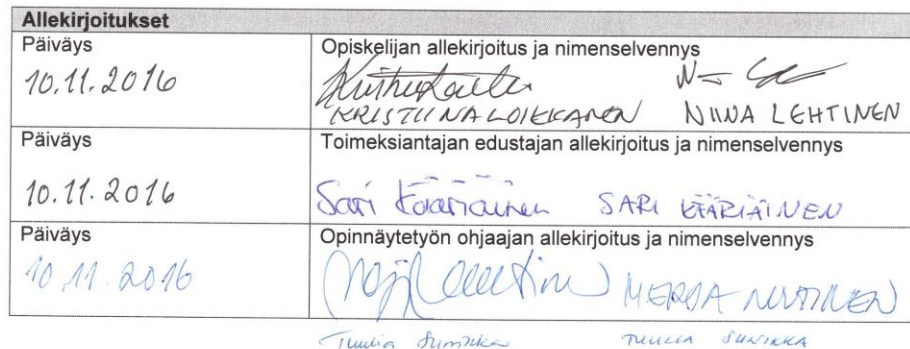 Allekirjoitukset
Päiväys Opiskelijan allekirjoitus ja nimenselvennys
10.11.2016
KRISTIINA LOIKKANEN NIINA LEHTINEN
Päiväys Toimeksiantajan edustajan allekirjoitus ja nimenselvennys
10.11.2016 Sari Kääriäinen SARI KÄÄRIÄINEN
Päiväys Opinnäytetyön ohjaajan allekirjoitus ja nimenselvennys
10.11.2016 MERJA NUUTINEN
Tuulia Sunikka TUULIA SUNIKKA